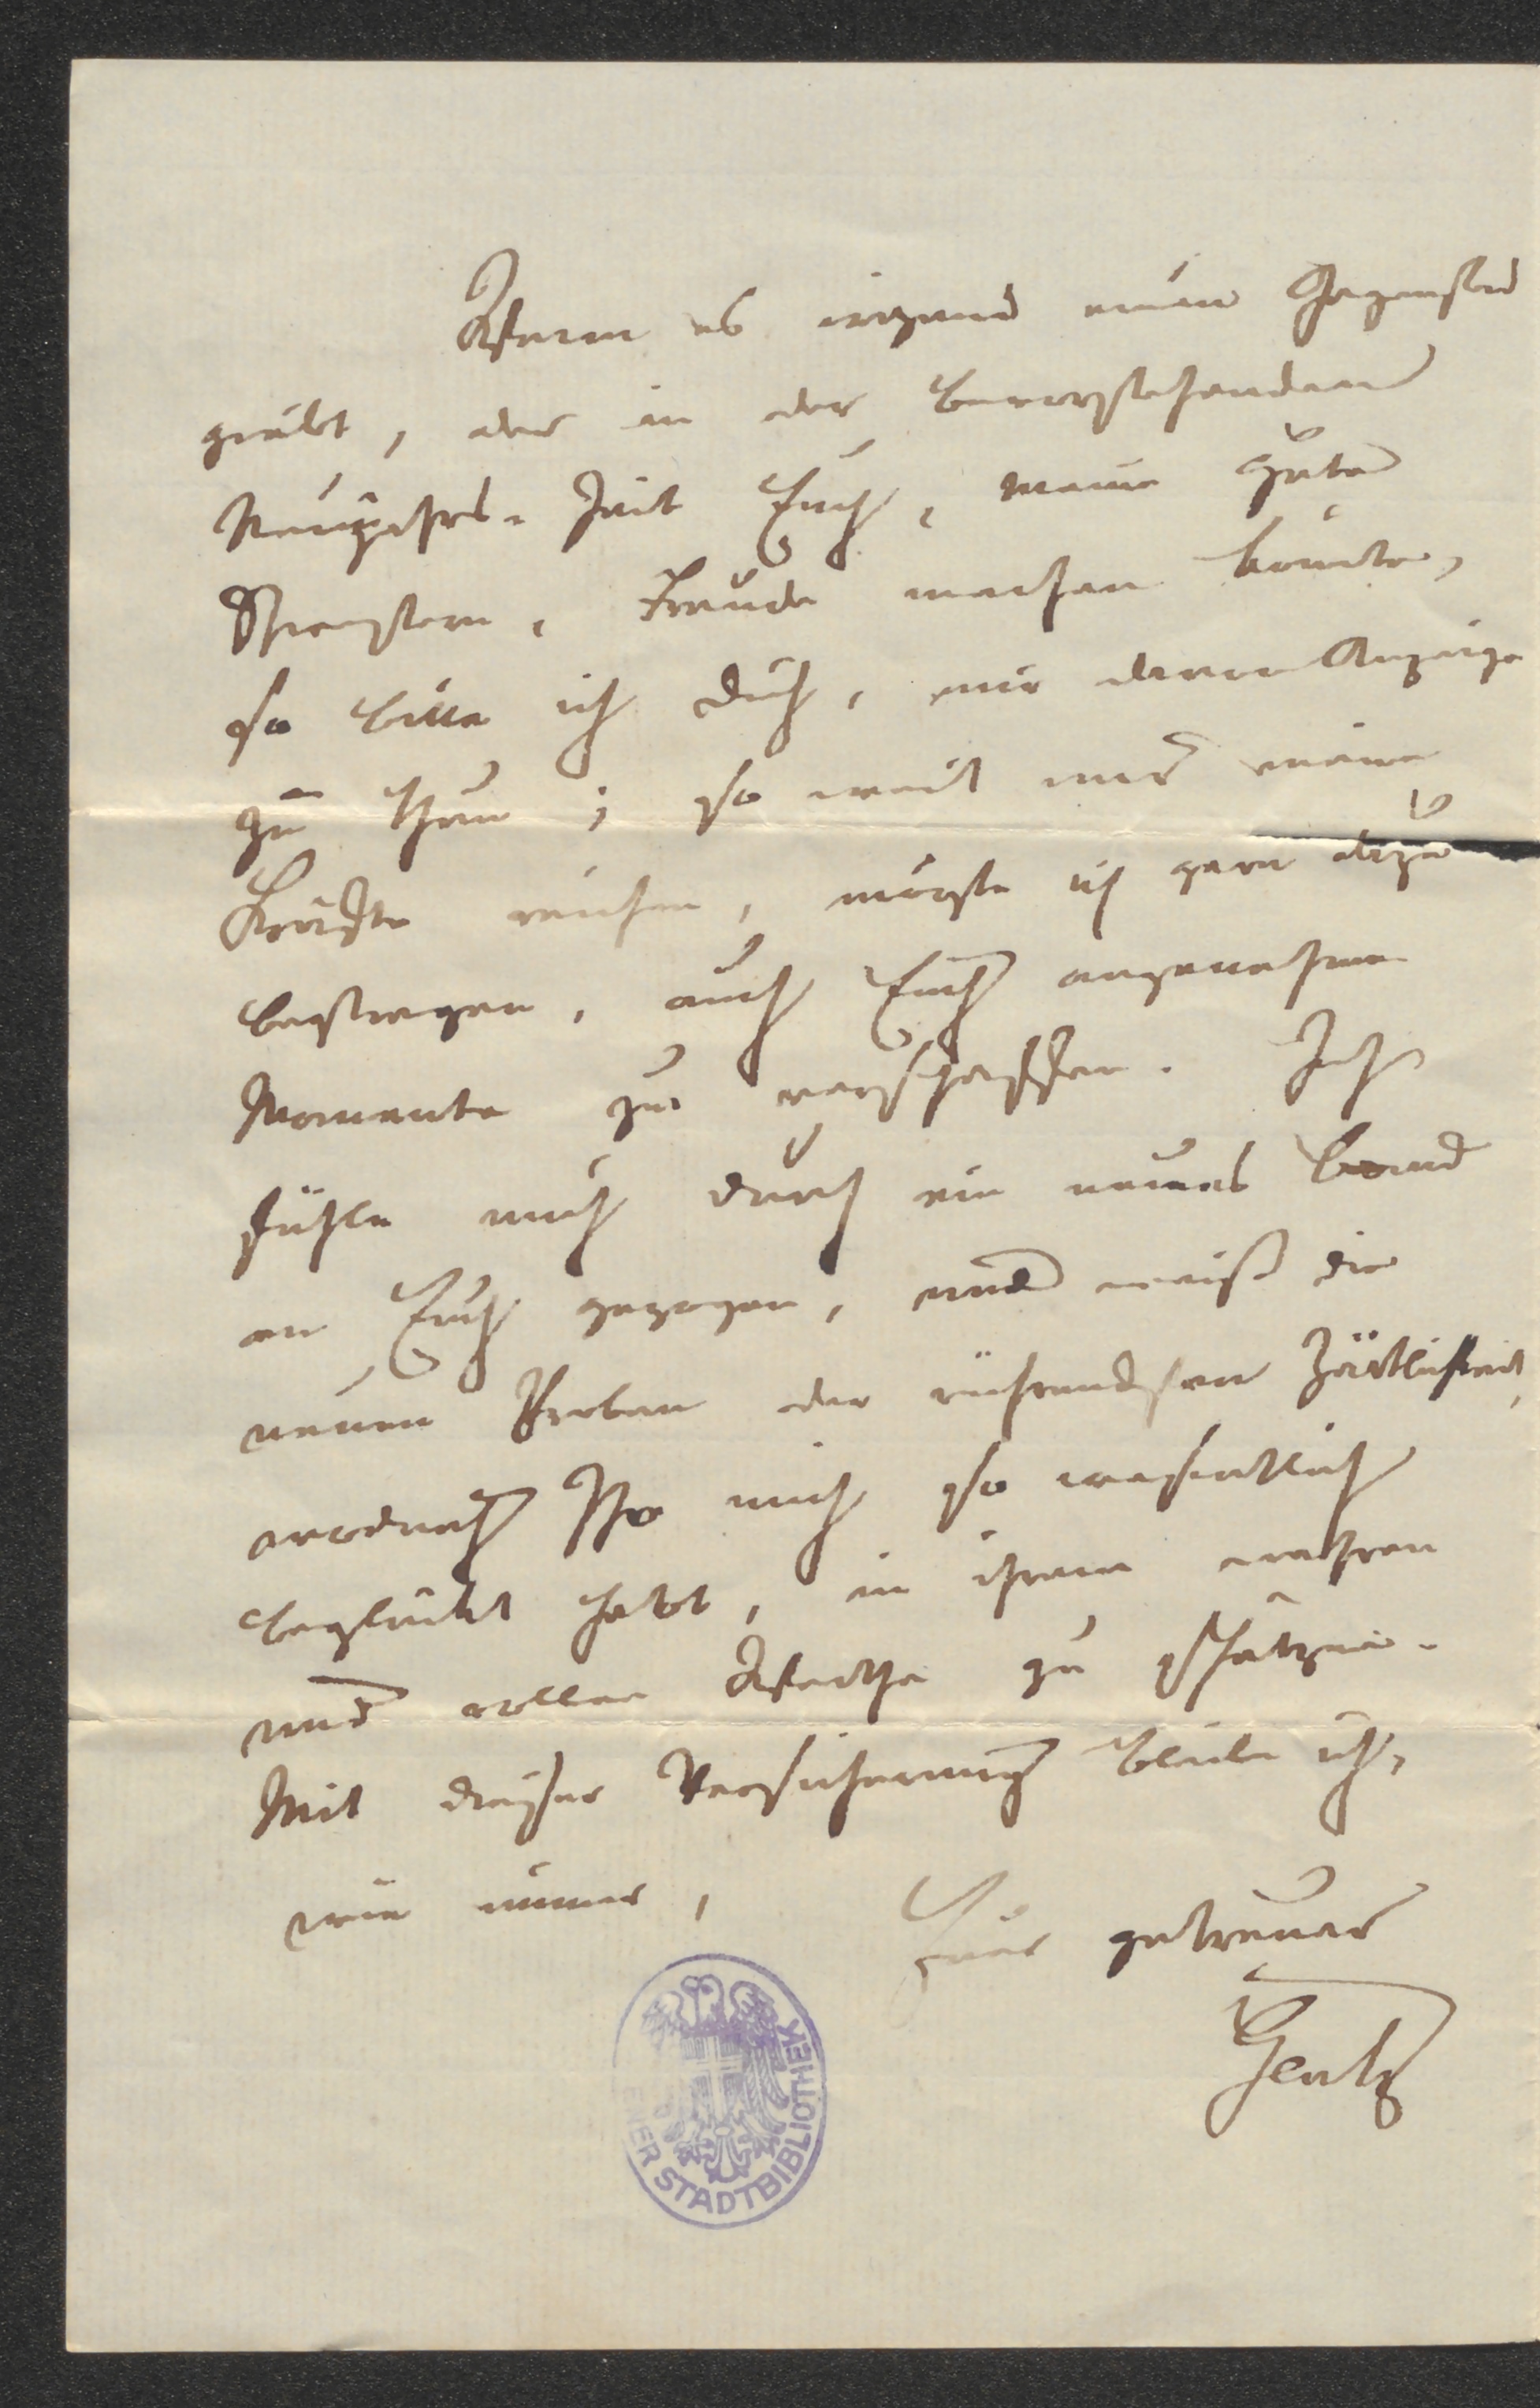 Wenn es irgend einen Gegenstand
giebt, der in der bevorstehenden
Neujahrs-Zeit Euch, meine guten
Schwestern, Freude machen könnte,
so bitte ich Dich, mir davon Anzeige
zu thun; so weit nur meine
Kräfte reichen, möchte ich gern dazu
beytragen, auch Euch angenehme
Momente zu verschaffen. Ich
fühle mich durch ein neues Band
an Euch gezogen, und weiß die
neuen Proben der rührendsten Zärtlichkeit,
wodurch Ihr mich so wesentlich
beglückt habt, in ihrem wahren
und vollen Werthe zu schätzen.
Mit dieser Versicherung bleibe ich,
wie immer,
Euer getreuer
Gentz
STADTBIBLIOTHEK